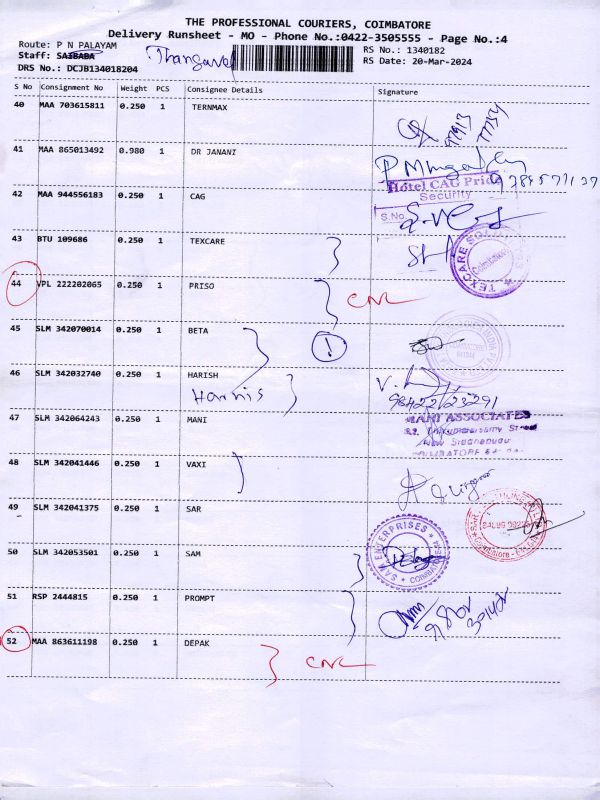 THE PROFESSIONAL COURIERS, COIMBATORE
Delivery Runsheet - MO - Phone No.:0422-3505555 - Page No.:4
Route: P N PALAYAM
RS No.: 1340182
Staff: SAIBABA Thangavel
RS Date: 20-Mar-2024
DRS No.: DCJB134018204
S No Consignment No Weight PCS Consignee Details Signature
40 MAA 703615811 0.250 1 TERNMAX
41 MAA 865013492 0.980 1 DR JANANI
Hotel CAG Pride
Security
42 MAA 944556183 0.250 1 CAG
S.No.
43 BTU 109686 0.250 1 TEXCARE
TEXCARE
Coimbatore
44 VPL 222202065 0.250 1 PRISO
CNL
45 SLM 342070014 0.250 1 BETA
1
46 SLM 342032740 0.250 1 HARISH
Harris
98422/23291
47 SLM 342064243 0.250 1 MANI
MANI ASSOCIATES
48 SLM 342041446 0.250 1 VAXI
49 SLM 342041375 0.250 1 SAR
50 SLM 342053501 0.250 1 SAM
ENTERPRISES
51 RSP 2444815 0.250 1 PROMPT
52 MAA 863611198 0.250 1 DEPAK
CNL